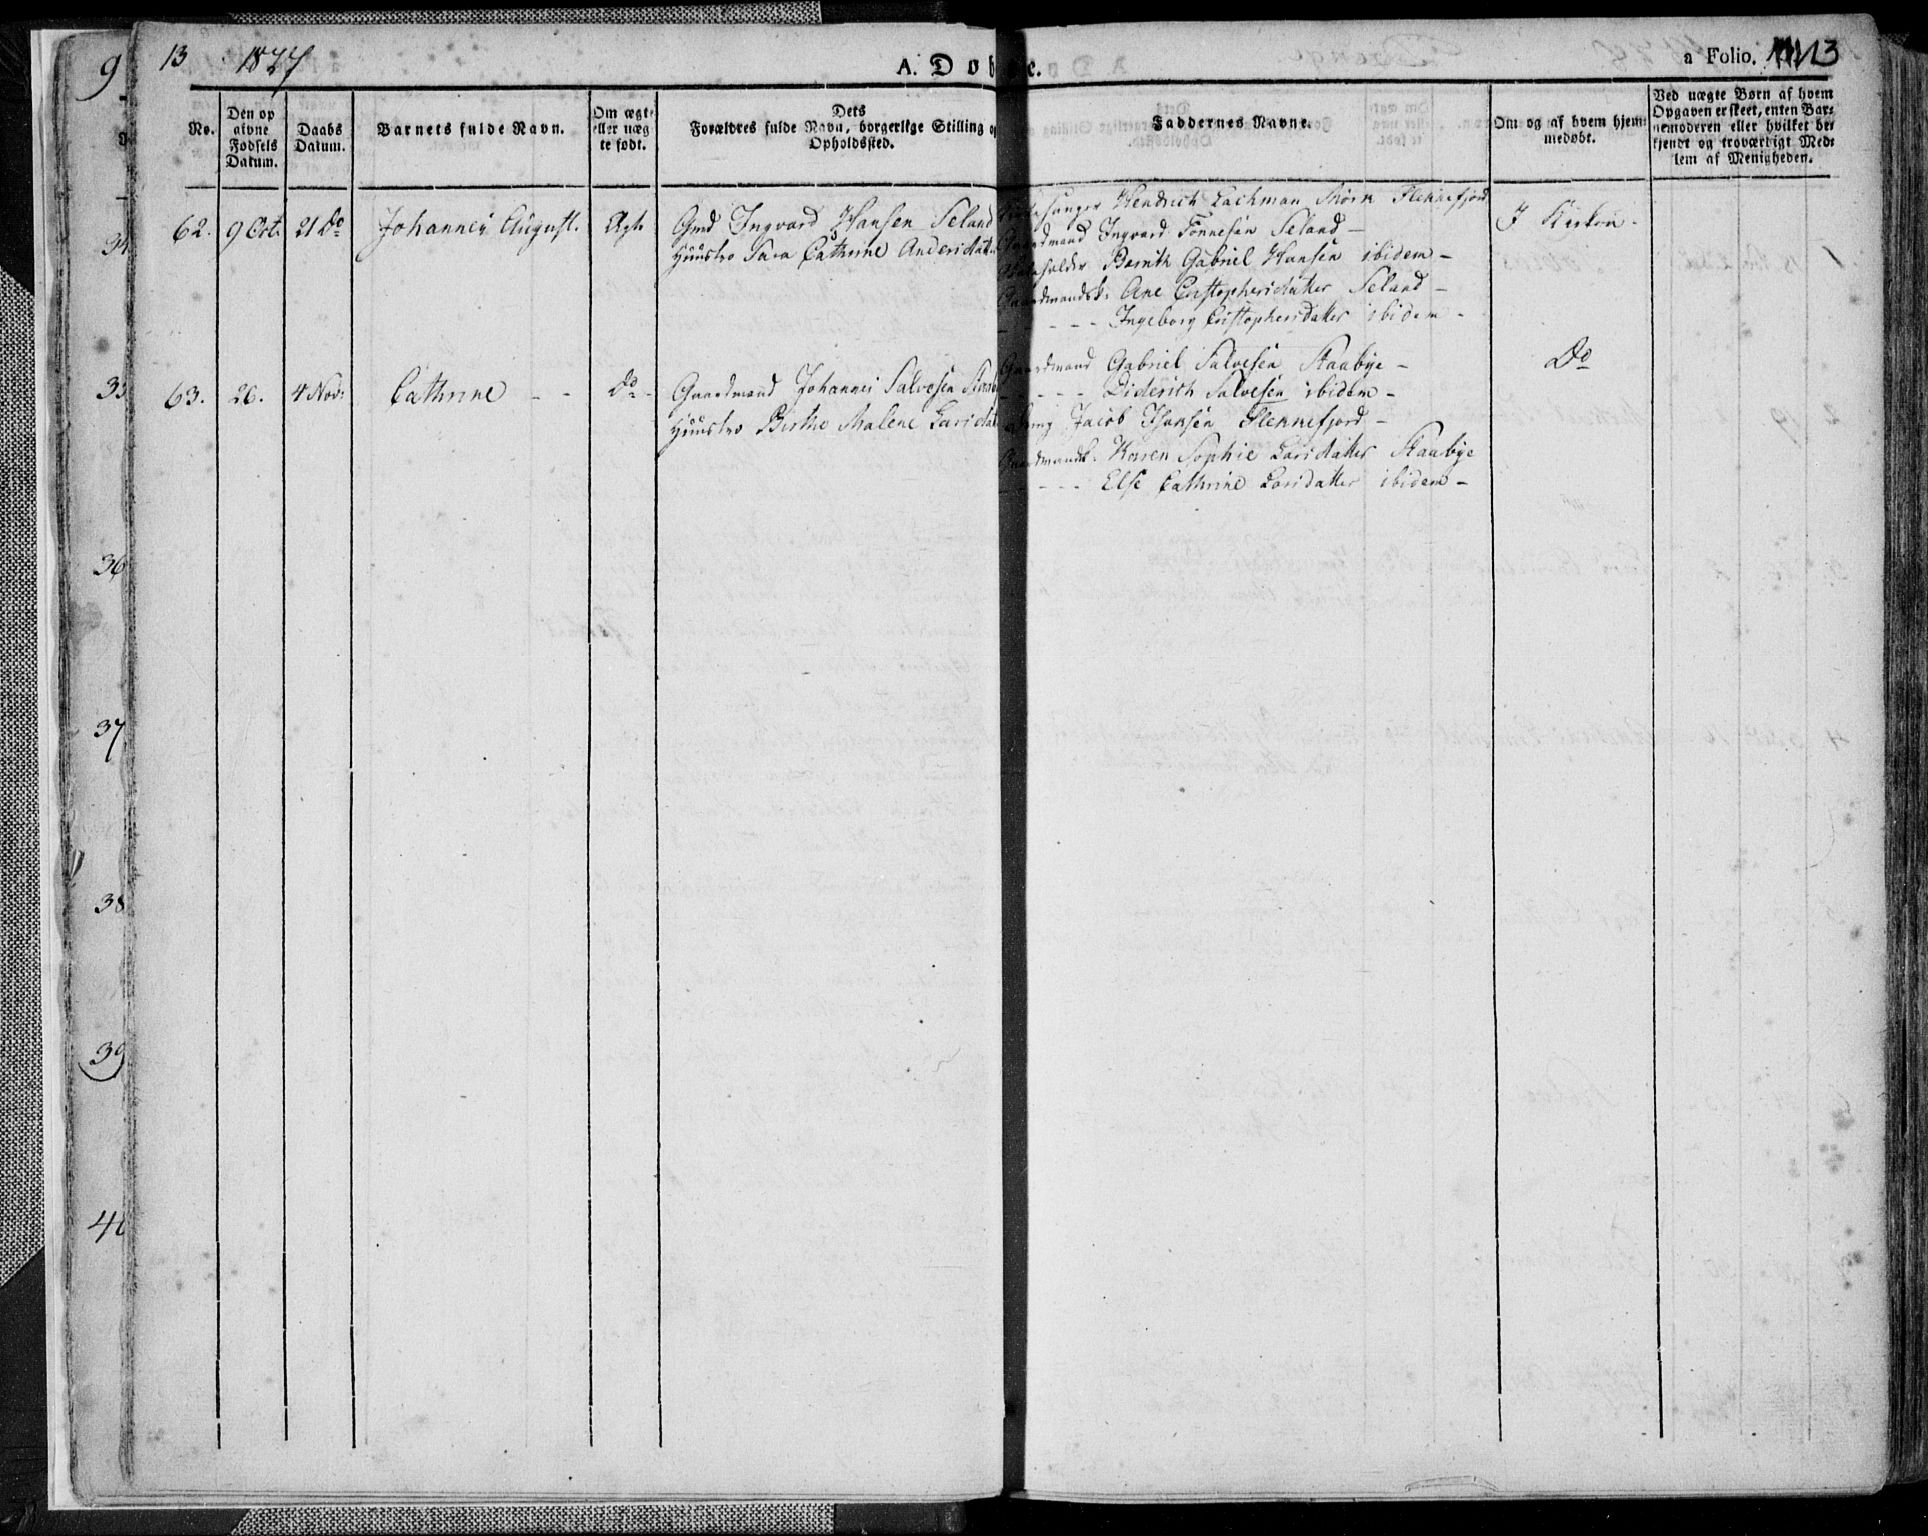 9
13
1827
A. Døbte.
a Folio. 13
No.
Den op
givne
Fødsels
Datum.
Daabs
Datum.
Barnets fulde Navn.
Om ægte
eller uæg
te født.
Dets
Forældres fulde Navn, borgerlige Stilling og
Opholdssted.
Faddernes Navne.
Om og af hvem hjem
medøbt.
Ved uægte Børn af hvem
Opgaven er skeet, enten Bar-
nemoderen eller hvilket be
kjendt og troværdigt Med-
lem af Menigheden.
62. 9 Oct. 21 Do Johannes August. Ægte Gmd Ingvard Hansen Seland
Huustro Sara Cathrine Andersdatt.
Hendrich Lachman Mørn Flekkefjord
Gaardmand Ingvard Tønnesen Seland -
Bernth Gabriel Hansen ibidem -
Gaardmandsk: Ane Cristophersdatter Seland -
- - - Ingeborg Cristophersdatter ibidem -
I Kirken -
63. 26. 4 Nov: Cathrine - - Do - Gaardmand Johannes Salvesen
Huustro Birthe Malene Larsdat
Gaardmand Gabriel Salvesen Staabye -
- - - Diderich Salvesen ibidem -
Jacob Hansen Flekkefjord -
Gaardmandsk: Karen Sophie Larsdatter Staabye
- - - Else Cathrine Larsdatter ibidem -
Do
34
35
36
37
38
39
40